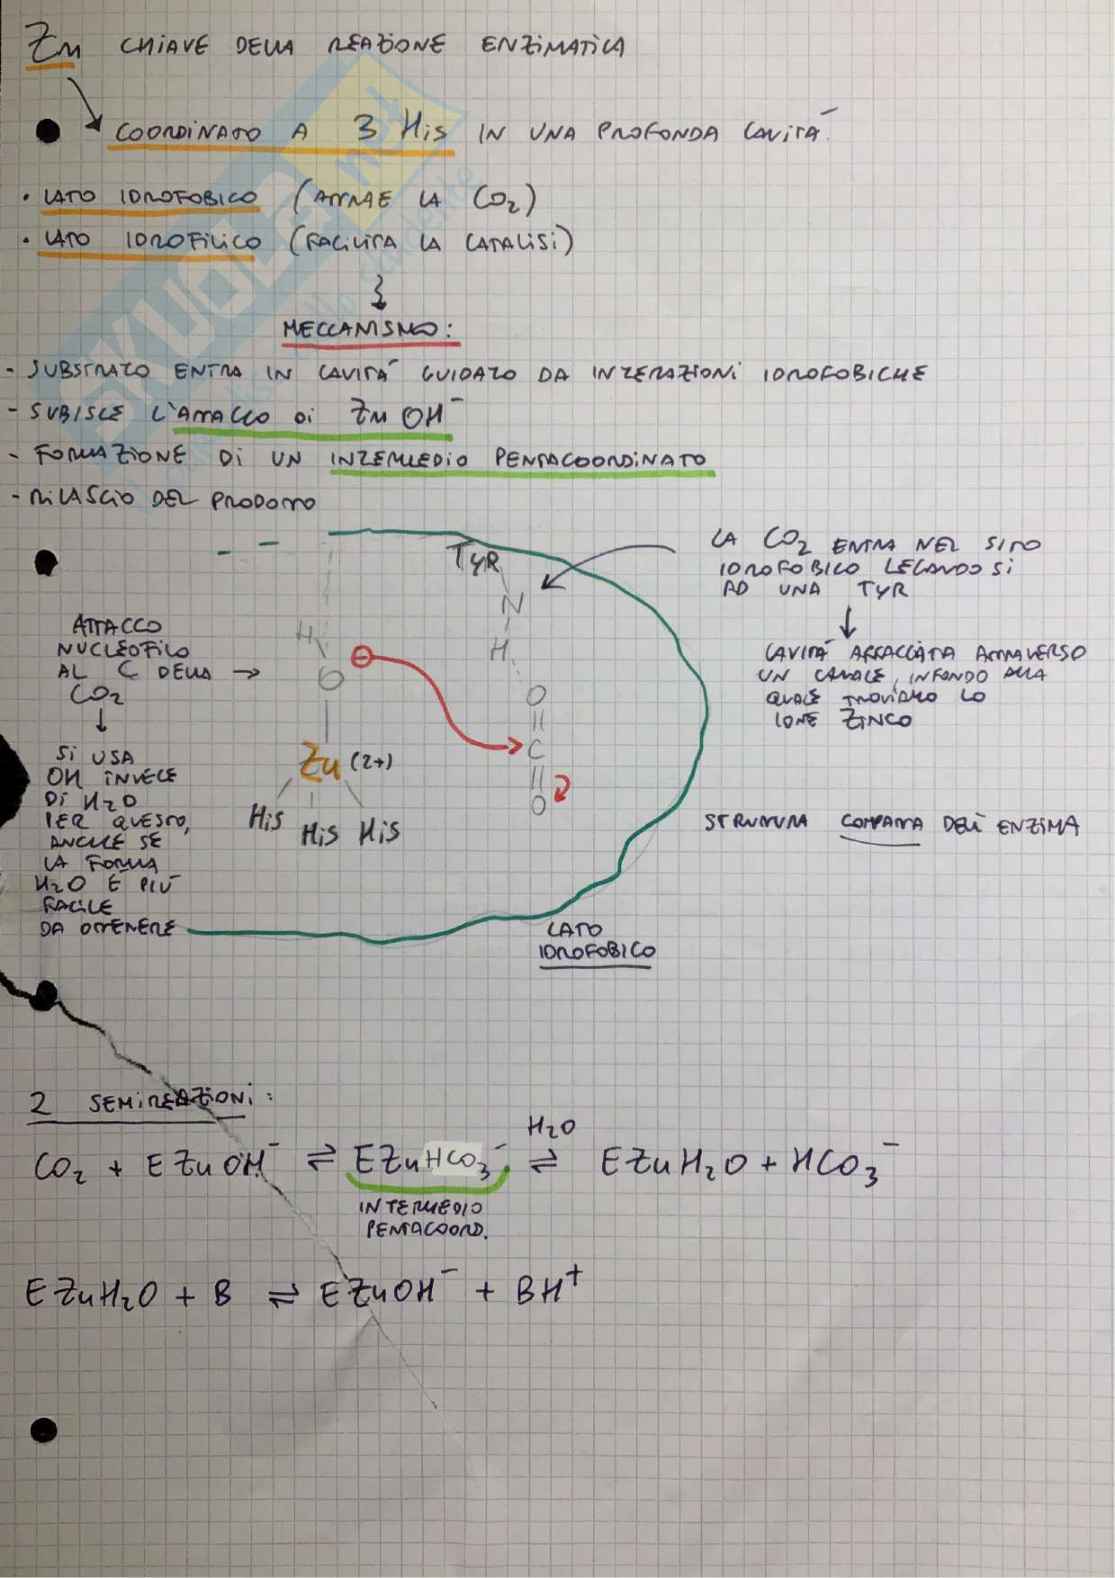 Zn CHIAVE DELLA REAZIONE ENZIMATICA
COORDINATO A 3 His IN UNA PROFONDA CAVITÀ.
· LATO IDROFOBICO (ATTRAE LA CO₂)
· LATO IDROFILICO (FACILITA LA CATALISI)
MECCANISMO:
- SUBSTRATO ENTRA IN CAVITÁ GUIDATO DA INTERAZIONI IDROFOBICHE
- SUBISCE L'ATTACCO DI ZnOH⁻
- FORMAZIONE DI UN INTERMEDIO PENTACOORDINATO
- RILASCIO DEL PRODOTTO
LA CO₂ ENTRA NEL SITO
IDROFOBICO LEGANDOSI
AD UNA TYR
CAVITÁ AFFACCIATA ATTRAVERSO
UN CANALE, INFONDO ALLA
QUALE TROVIAMO LO
IONE ZINCO
STRUTTURA COMPATTA DELL'ENZIMA
ATTACCO
NUCLEOFILO
AL C DELLA →
CO₂
SI USA
OH INVECE
DI H₂O
PER QUESTO,
ANCHE SE
LA FORMA
H₂O É PIÙ
FACILE
DA OTTENERE
TYR
N
H
O
C
O
H
O
⊖
Zn (2+)
His His His
LATO
IDROFOBICO
2 SEMIREAZIONI:
H₂O
CO₂ + EZnOH⁻ ⇌ EZnHCO₃⁻ ⇌ EZnH₂O + HCO₃⁻
INTERMEDIO
PENTACOORD.
EZnH₂O + B ⇌ EZnOH⁻ + BH⁺